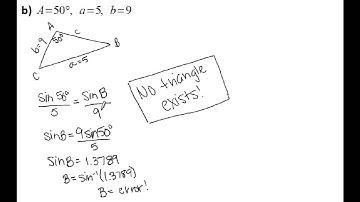 b) A=50°, a=5, b=9
A
b=9
50°
c
B
C
a=5
sin 50° / 5 = sin B / 9
sin B = 9 sin 50° / 5
sin B = 1.3789
B = sin⁻¹(1.3789)
B = error!
No triangle
exists!